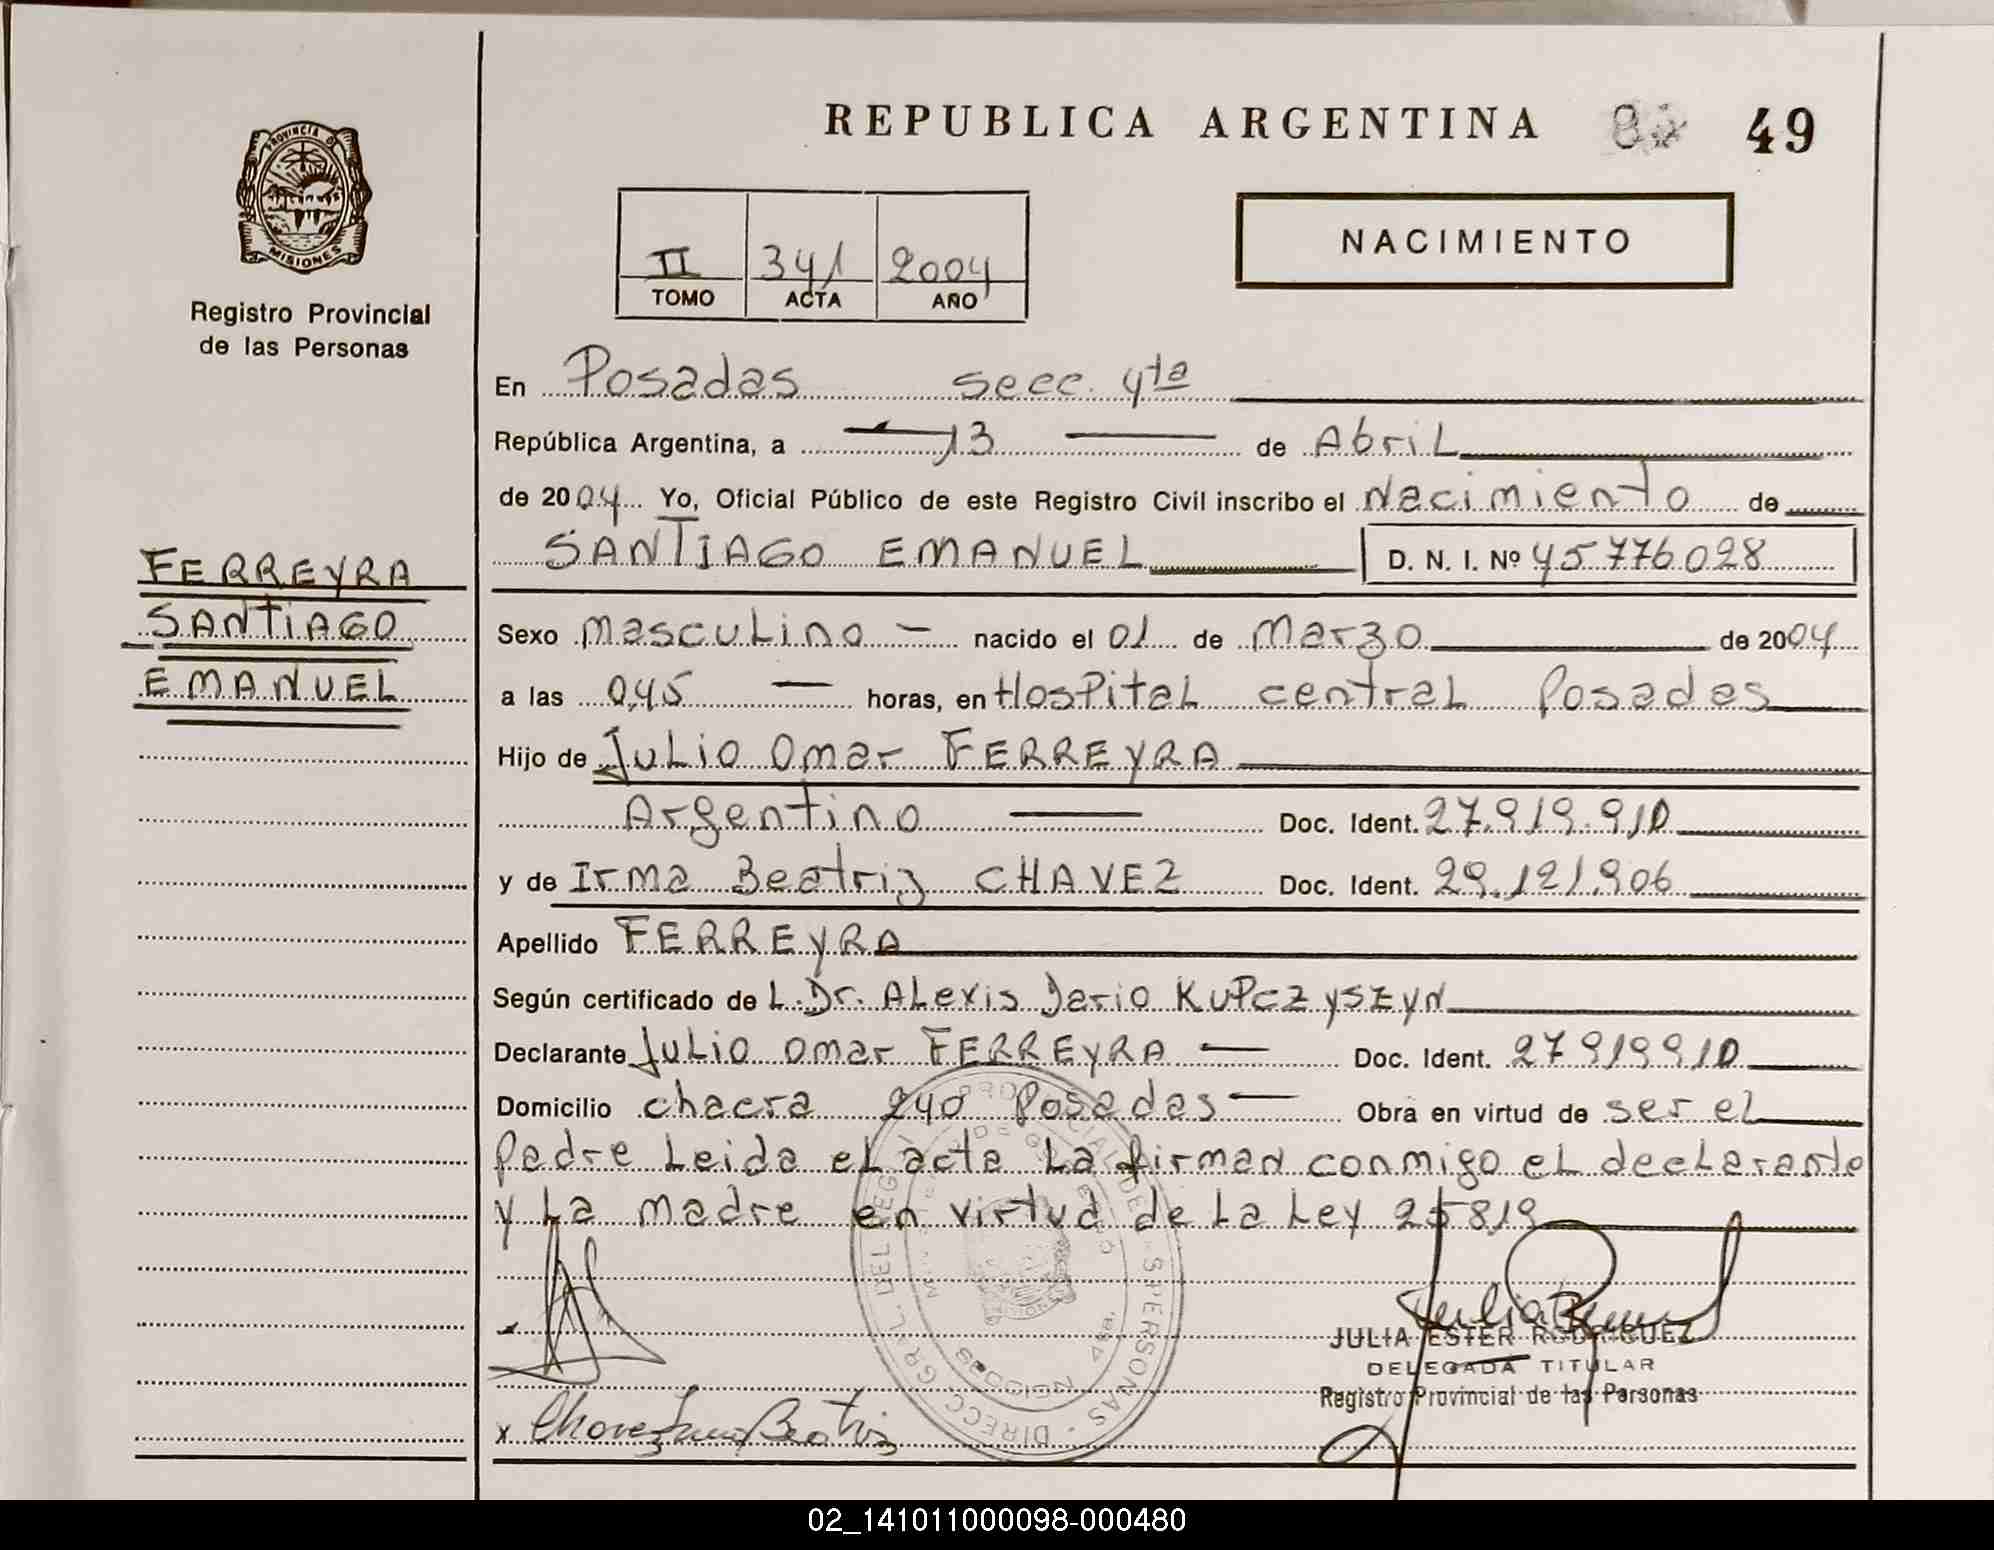 REPUBLICA ARGENTINA 49
PROVINCIA DE
MISIONES
Registro Provincial
de las Personas
II 341 2004
TOMO ACTA AÑO
NACIMIENTO
En Posadas secc. 4ta
República Argentina, a 13 de Abril
de 2004 Yo, Oficial Público de este Registro Civil inscribo el Nacimiento de
SANTIAGO EMANUEL D. N. I. Nº 45776028
FERREYRA
SANTIAGO
EMANUEL
Sexo masculino nacido el 01 de Marzo de 2004
a las 0,45 horas, en Hospital central Posadas
Hijo de Julio Omar FERREYRA
Argentino Doc. Ident. 27.919.910
y de Irma Beatriz CHAVEZ Doc. Ident. 29.121.906
Apellido FERREYRA
Según certificado de L. Dr. Alexis Dario KUPCZYSZYN
Declarante Julio Omar FERREYRA Doc. Ident. 27919910
Domicilio chacra 240 Posadas Obra en virtud de ser el
Padre Leida el acta La firman conmigo el declarante
y La madre en virtud de La Ley 25819
JULIA ESTER RODRIGUEZ
DELEGADA TITULAR
Registro Provincial de las Personas
x Chavez Irma Beatriz
02_141011000098-000480